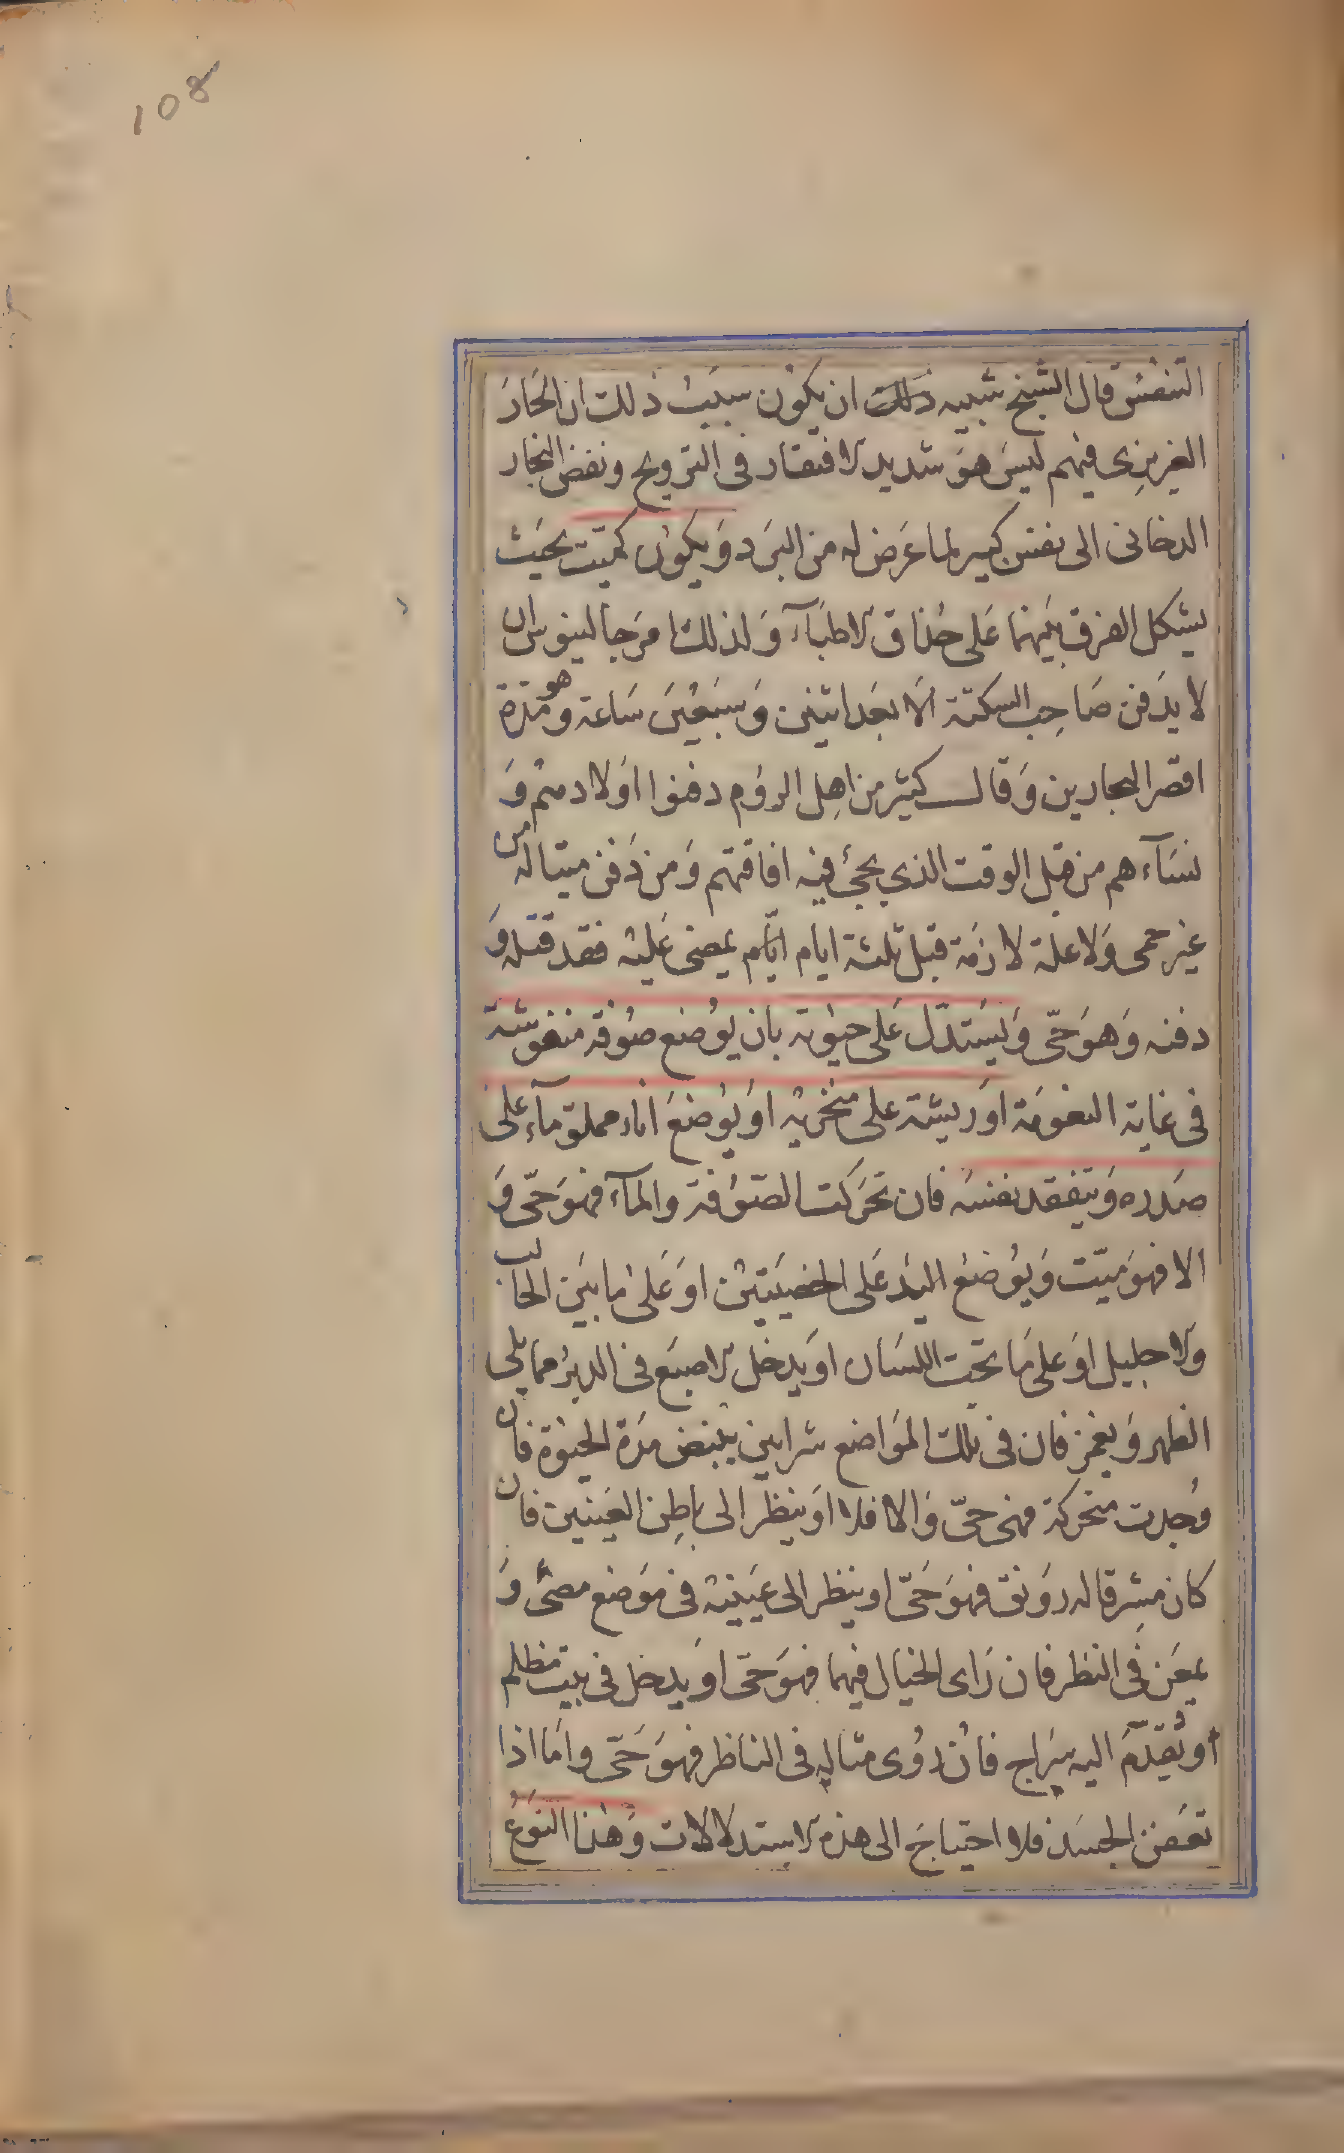 108
التنفس قال الشيخ شبيه ذلك ان يكون سبب ذلك ان الحَارَ
الغريزى فيهم ليسَ هوَ شديد الافتقار فى الترويح ونفض البخار
الدخانى الى نفس كثير لما عَرَض له من البرَد وَ يكون كميّت بحيَث
يشكل الفرق بينهما عَلى حُذاق الاطبَآء وَ لذلك امرَ جالينوس ان
لا يدَفن صَاحِب السكتة الا بعَد اثنين وَ سَبعْينَ سَاعة و هو مدّة
اقصر البحارين وَ قالــ كثير من اهِل الروُم دفنوا اوَلادهم وَ
نسَآءهم من قبل الوقت الذي يجئ فيه افاقتهم وَ من دَفن ميتا له من
غير حمى وَلا علة لازمَة قبل ثلثة ايام ايّام يمضى عَليه فقد قتله وَ
دفنه وَ هوَ حَىّ وَ يسَتدَّل عَلى حيوٰته بان يوُضع صوُفة منفوشة
فى غاية النعومَة اوَ ريشة على منخريه اوَ يوُضعَ اناء مملوّ مآء عَلى
صَدره وَ يتفقد نفسَه فان تحرَكت الصّوُفة والمآء فهوَ حَىّ وَ
الا فهوَ ميّت وَ يوُضع اليَد عَلى الخصيَتين اوَ عَلى ما بيَن الحالب
والاحليل اوَ على مَا تحَت اللسَان اوَ يدخل الاصبَع فى الدبُر مما يلى
الظهر وَ يغمز فان فى تلك المَواضع شرايين ينبض مدَة الحيوٰة فان
وُجدت متحركة فهى حىّ وَ الا فلا اوَ ينظر الى باطِن العَينين فان
كان مشرقا له روَنق فهوَ حَىّ او ينظر الى عَينيه فى موَضع مضئ وَ
يمعَن فى النظر فان رَاى الخيال فيهما فهوَ حَى اوَ يدخل فى بيت مظلم
أو يُقدّمَ اليه سِرَاج فان رُوى مثاله فى الناظر فهوَ حَىّ وامَا اذا
تعَفن الجسَد فلا احتياجَ الى هذه الاستدلالات وَ هٰذا النوَعُ